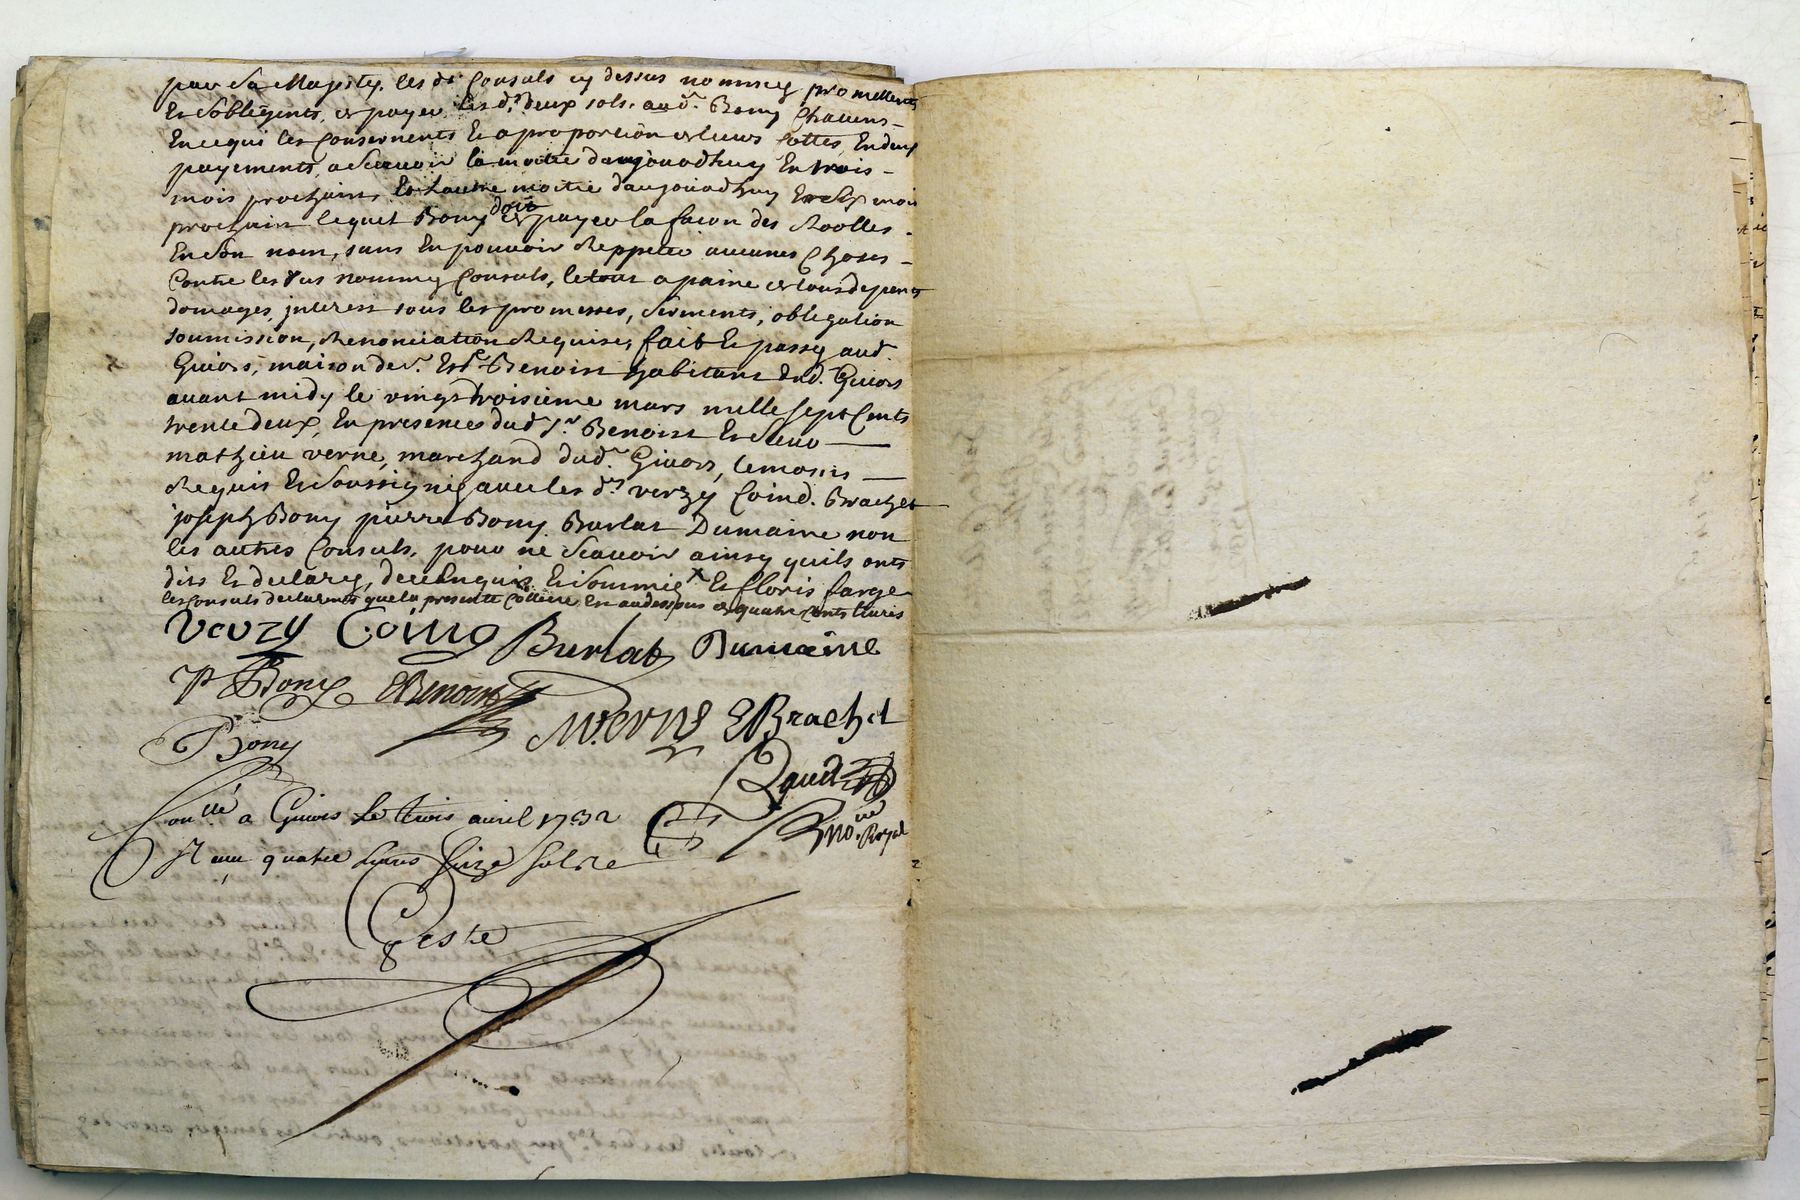 par Sa Majesty, les ds Consuls cy dessus nommez promettents
Et sobligents, de payer lesds deux sols, audt Bony Chacuns
En ce qui les Consernents Et a proportion de leurs Cottes, En deux
payements, a Scauoir la moitié daujourdhuy En trois
mois prochains, Et Lautre moitié daujourdhuy En Six mois
prochain lequel Bony doit de payer la facon des Roolles
En Son nom, sans En pouuoir Reppeter aucunes Choses
Contre les sus nommez Consuls, le tout a paine de tous depents
domages, jnterest sous les promesses, serments, obligation
soumission, Renonciation Requises, fait Et passé aud.
Giuors, maison de sr. Estne Benoist habitant dud. Giuors
auant midy le vingt troisieme mars mille sept Cents
trente deux, En presences dud sr. Benoist Et sieur
mathieu verne, marchand dudt Giuors, temoins
Requis Et Soussignés auec les ds verzy Coind. Brachet
joseph Bony pierre Bony Burlat Dumaine non
les autres Consuls, pour ne Scauoir ainsy quils onts
dits Et declarez, de ce Enquis Et Sommés x Et floris farge
les Consuls declarents que la presente Cottière Est au dessous de quatre Cents liures
Verzy Coind Burlat Dumaine
P Bony EBenoist
M.Verne EBrachet
P Bony
no.re Royal
Conllé a Giuors Le trois auril 1732
R eceu quatre Liures Seize sols
Geste